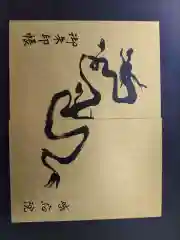 御朱印帳
院